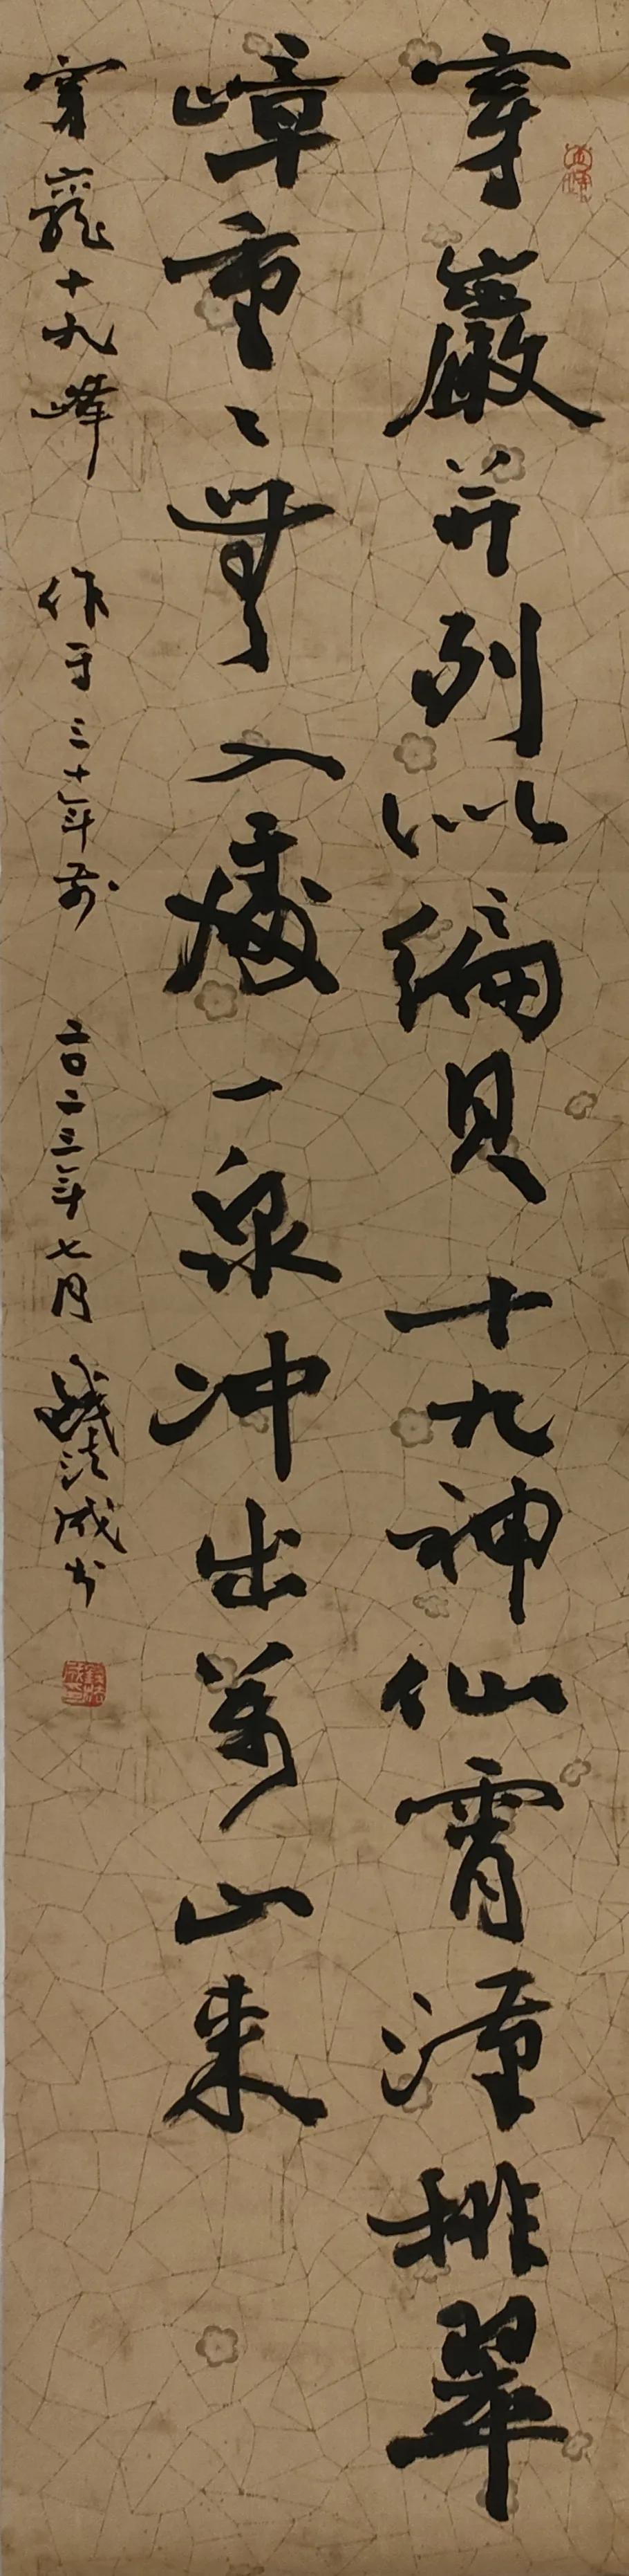 穿巖并列似編貝十九神仙霄漢排翠
嶂重〻無入處一泉冲出萬山來
穿巖十九峰 作于三十年前 二〇二三年七月 錢法成书